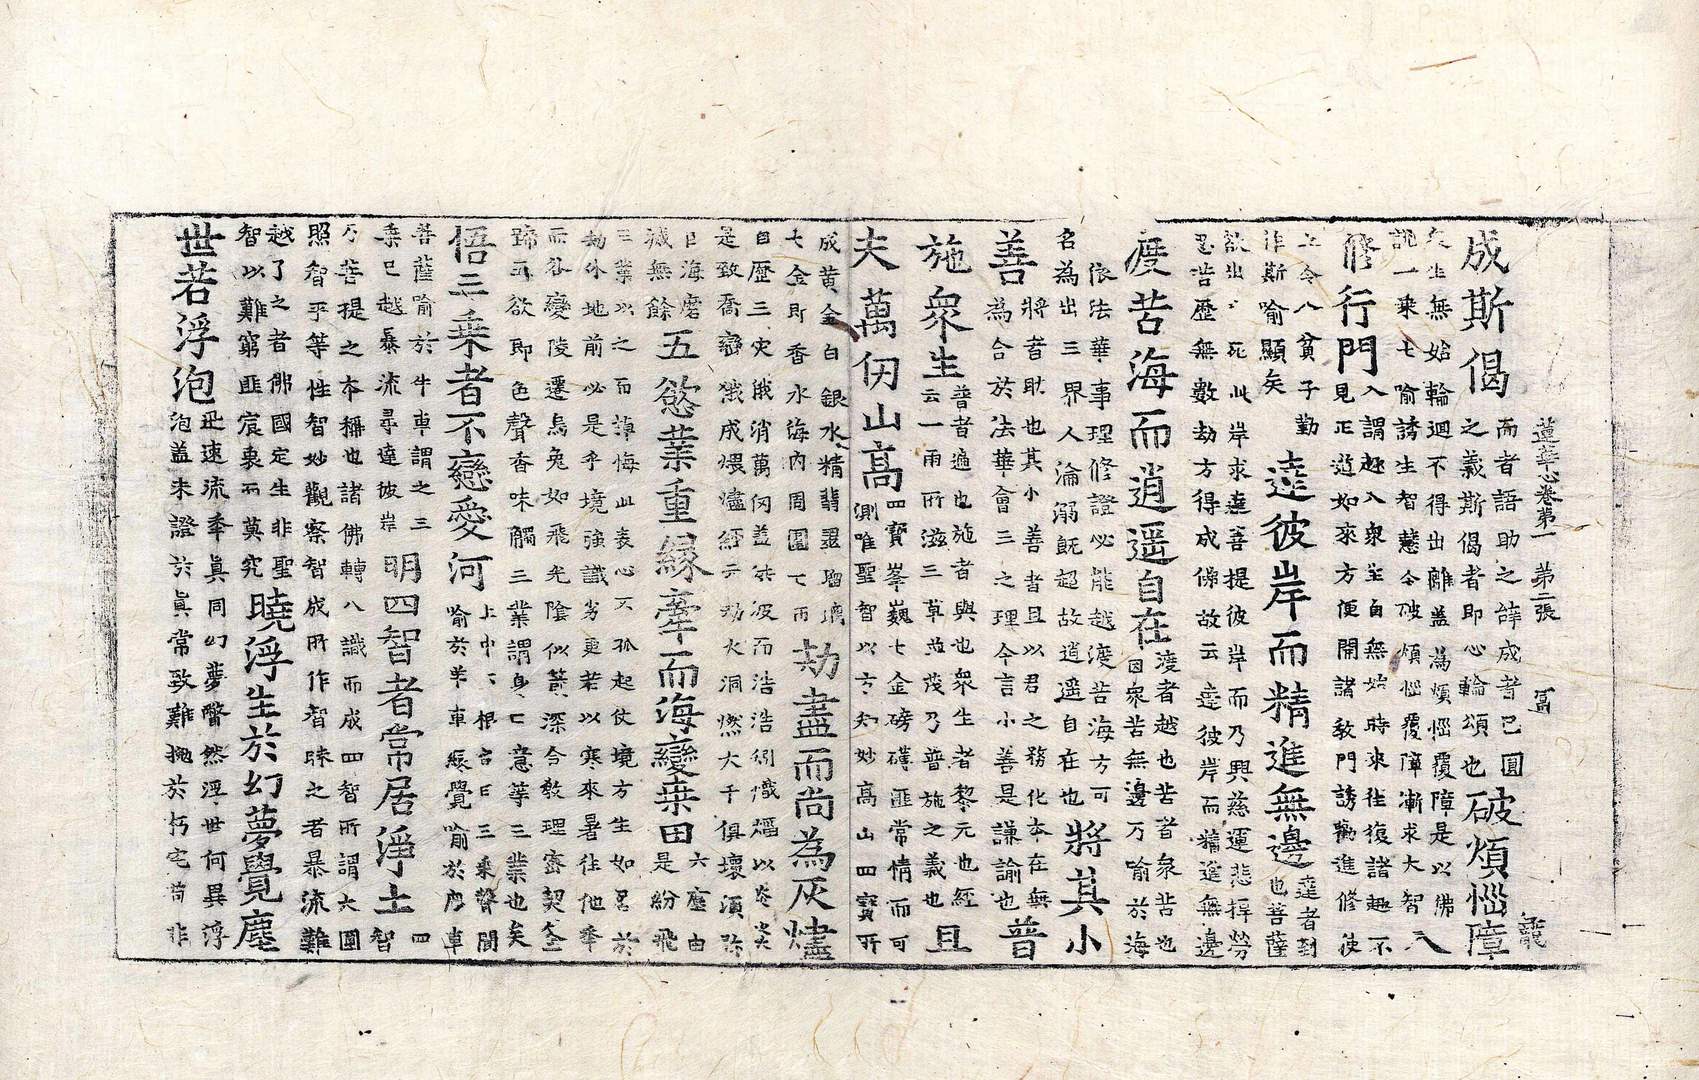 蓮華心卷第一 第二張 冨 龍
成斯偈 而者語助之辝成者已圓
之義斯偈者即心輪頌也 破煩惱障
矣生無始輪迴不得出離盖為煩惱覆障是以佛
說一乗七喻誘生智慧令破煩惱覆障漸求大智 入
修行門 入謂趣入衆生自無始時來往復諸趣不
見正道如來方便開諸敎門誘勸進修使
之令入貧子勤
作斯喻顯矣 達彼岸而精進無邊 達者到
也菩薩
欲出生死此岸求達菩提彼岸而乃興慈運悲捍勞
忍苦歷無數劫方得成佛故云達彼岸而精進無邊
度苦海而逍遥自在 渡者越也苦者衆苦也
因衆苦無邊乃喻於海
依法華事理修證必能越渡苦海方可
名為出三界人淪溺旣超故逍遥自在也 將其小
善 將者助也其小善者且以君之務化本在無
為合於法華會三之理今言小善是謙諭也 普
施衆生 普者遍也施者與也衆生者黎元也經
云一雨所滋三草並茂乃普施之義也 且
夫萬仞山高 四寶峯巍七金磅礴匪常情而可
測唯聖智以方知妙高山四寶所
成黄金白銀水精翡翠瑠璃
七金則香水海內周圍七雨 劫盡而尚為灰燼
自歷三灾俄消萬仞盖共汲而浩浩烈熾熖以炎炎
是致喬巒成煨燼經云劫火洞燃大千俱壞須弥
巨海磨
滅無餘 五慾業重緣牽而海變桒田 六塵由
是紛飛
三業以之而悔此表心不孤起仗境方生如居於
劫外地前必是乎境強識劣更若以寒來暑往他季
而谷變陵遷烏兔如飛光陰似箭深合敎理審契筌
蹄五欲即色聲香味觸三業謂身口意等三業也矣
悟三乗者不戀愛河 上中下根名曰三乗聲聞
喻於羊車緣覺喻於鹿車
菩薩喻於牛車謂之三
乗已越暴流尋達彼岸 明四智者常居淨土 四
智
乃菩提之本稱也諸佛轉八識而成四智所謂大圓
照智平等性智妙觀察智成所作智昧之者暴流難
越了之者佛國定生非聖
智以難窮匪宸衷而莫究 曉浮生於幻夢覺塵
世若浮泡 飛速流季眞同幻夢瞥然浮世何異浮
泡盖未證於眞常致難拋於朽宅苟非